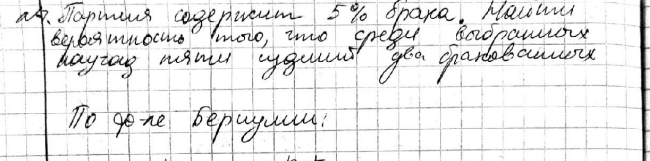 №. Партия содержит 5% брака. Найти
вероятность того, что среди выбранных
наугад пяти изделий два бракованных
По ф-ле Бернулли: